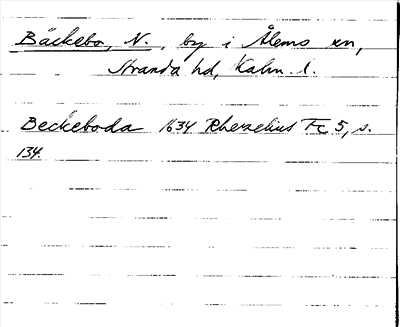 Bäckebo, N., by i Ålems sn,
Stranda hd, Kalm. l.
Beckeboda 1634 Rhezelius Fc 5, s.
134.